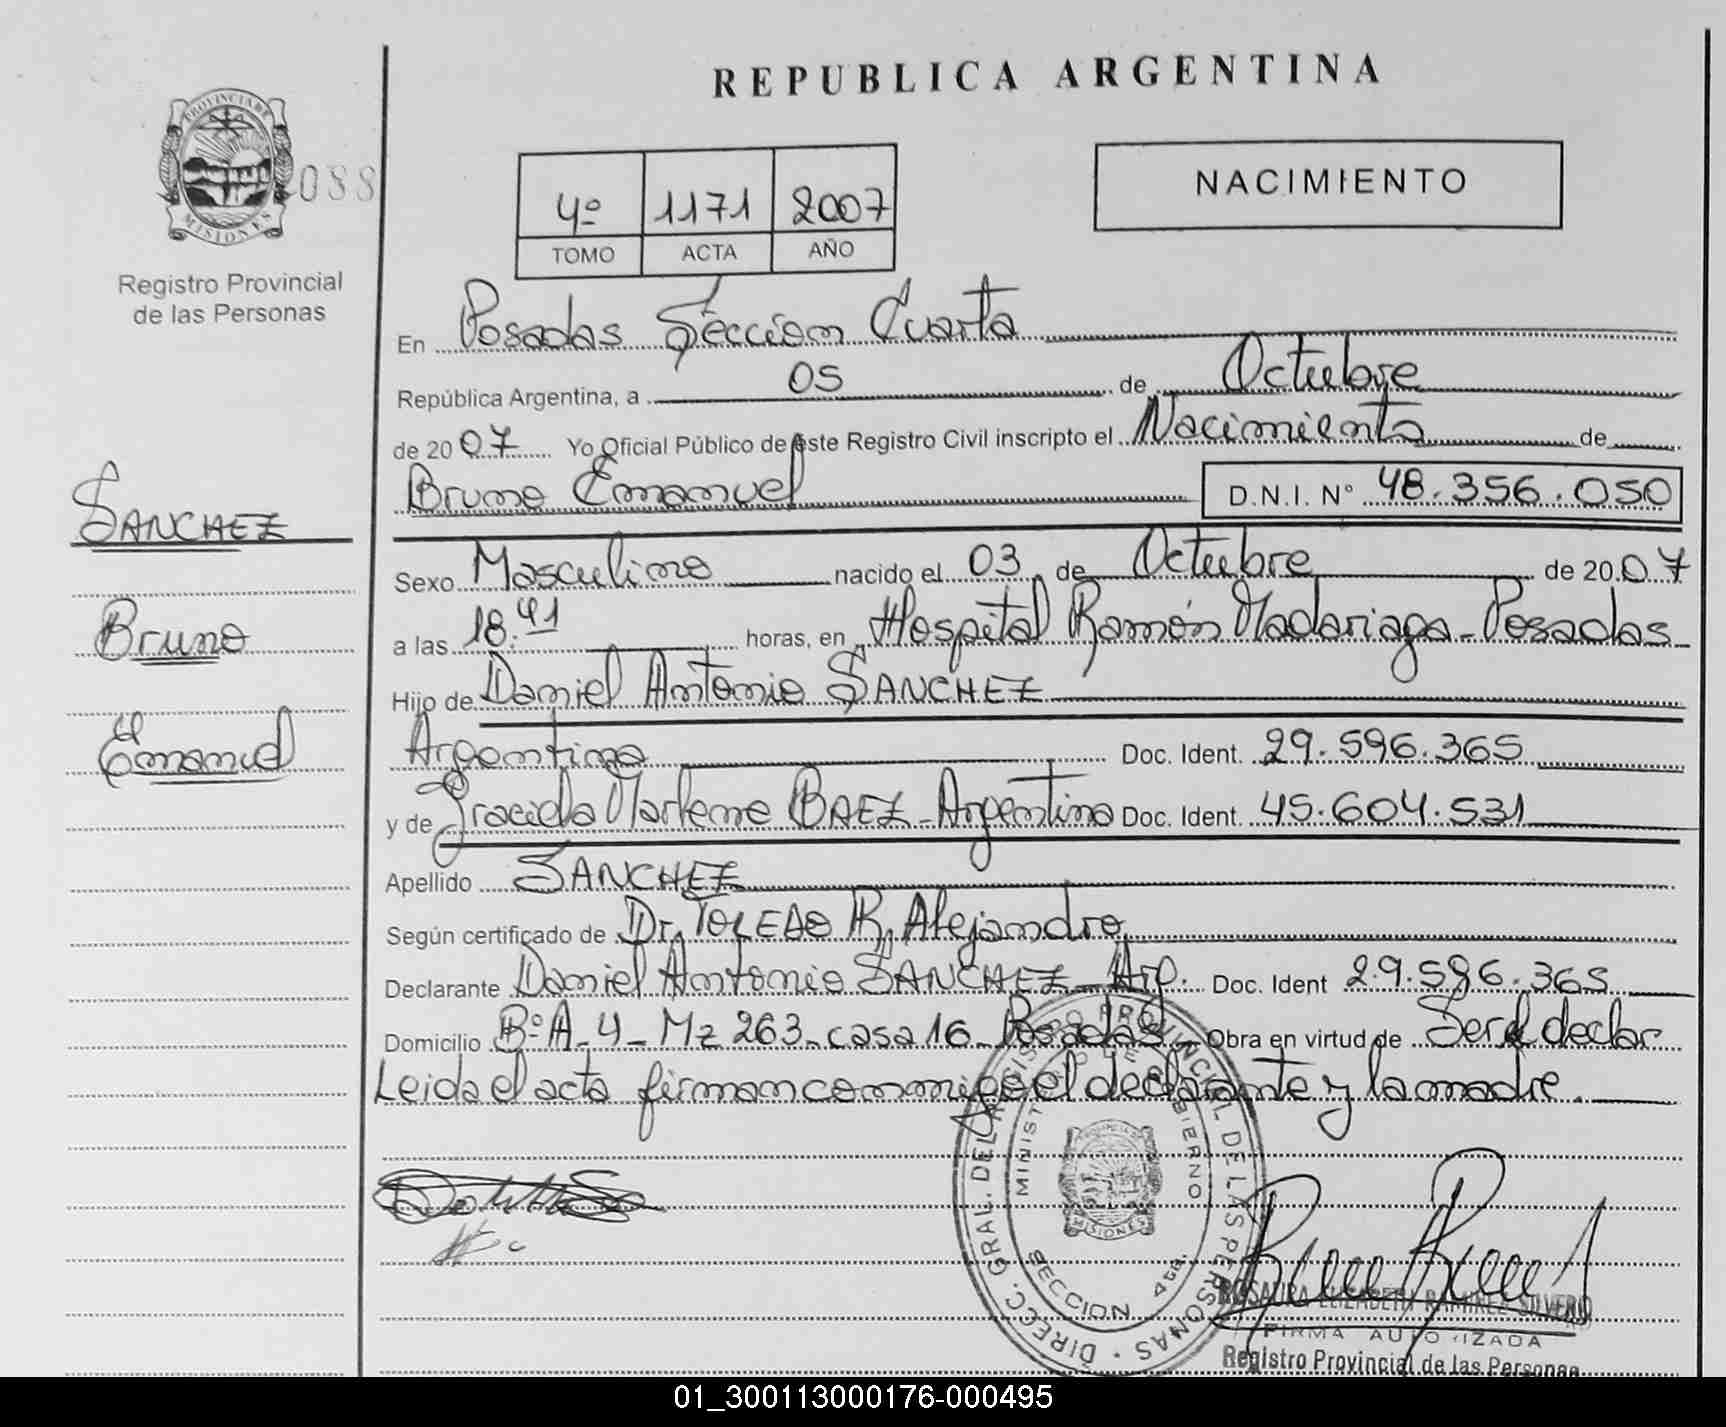 REPUBLICA ARGENTINA
PROVINCIA DE
MISIONES
088
Registro Provincial
de las Personas
4º 1171 2007
TOMO ACTA AÑO
NACIMIENTO
En Posadas Sección Cuarta
República Argentina, a 05 de Octubre
de 2007 Yo Oficial Público de este Registro Civil inscripto el Nacimiento de
Bruno Emanuel D.N.I. Nº 48.356.050
SANCHEZ
Bruno
Emanuel
Sexo Masculino nacido el 03 de Octubre de 2007
a las 18.41 horas, en Hospital Ramón Madariaga - Posadas
Hijo de Daniel Antonio SANCHEZ
Argentino Doc. Ident. 29.596.365
y de Graciela Marlene BAEZ - Argentina Doc. Ident. 45.604.531
Apellido SANCHEZ
Según certificado de Dr. TOLEDO R. Alejandro
Declarante Daniel Antonio SANCHEZ - Arg. Doc. Ident 29.596.365
Domicilio Bº A-4 - Mz 263 - casa 16 - Posadas - Obra en virtud de Ser el declar
Leida el acta firman conmigo el declarante y la madre.
DIRECC. GRAL. DEL REGISTRO PROVINCIAL DE LAS PERSONAS
MINISTERIO DE GOBIERNO
MISIONES
SECCION 4ta.
ROSAURA ELIZABETH RAMIREZ SILVERO
FIRMA AUTORIZADA
Registro Provincial de las Personas
01_300113000176-000495